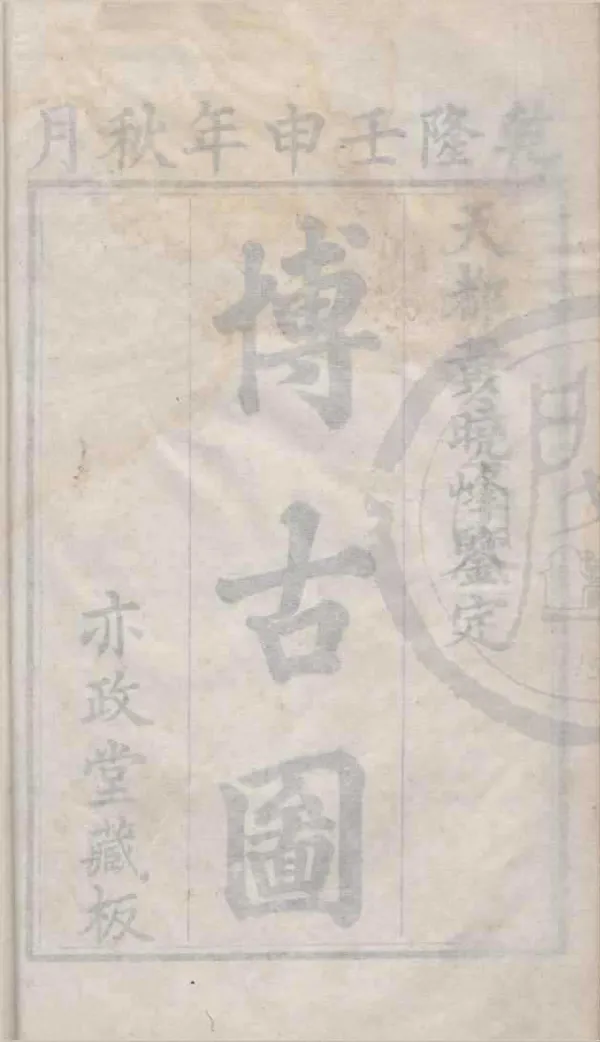 乾隆壬申年秋月
天都黃曉峰鑒定
博古圖
亦政堂藏板